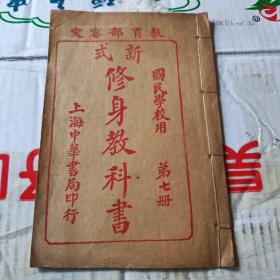 教育部審定
新式
國民學校用
修身教科書
第七册
上海中華書局印行